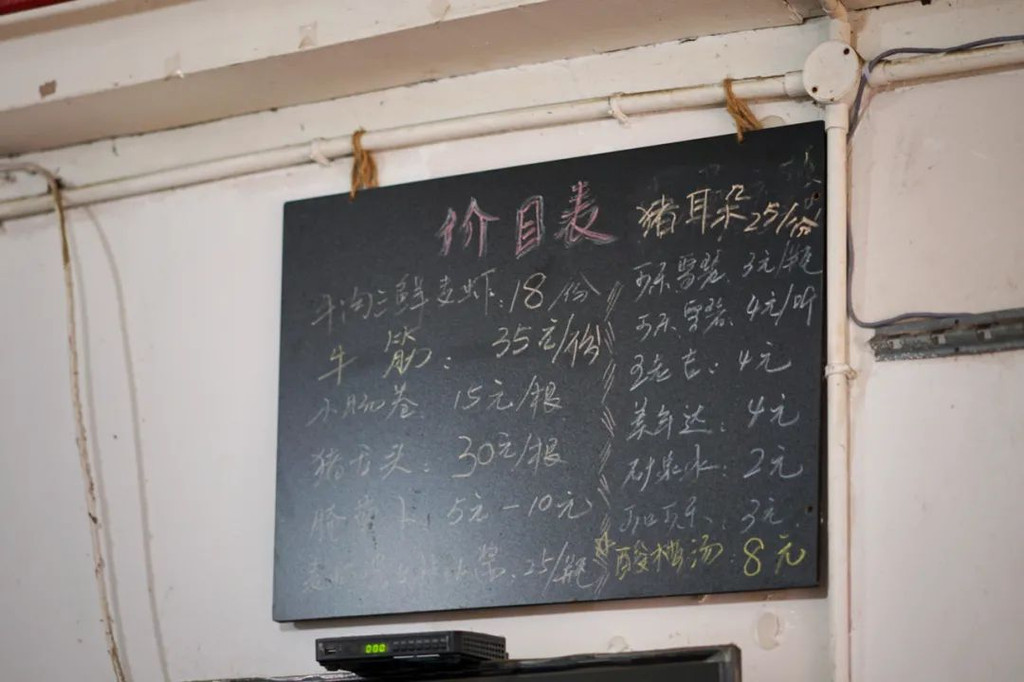 价目表
三鲜 虾:18/份
牛筋:35元/份
小肠卷:15元/根
猪舌头:30元/根
萝卜:5元-10元
25/瓶
猪耳朵25/份
可乐雪碧:3元/瓶
可乐、雪碧:4元/听
王老吉:4元
美年达:4元
矿泉水:2元
可口可乐:3元
酸梅汤:8元
000